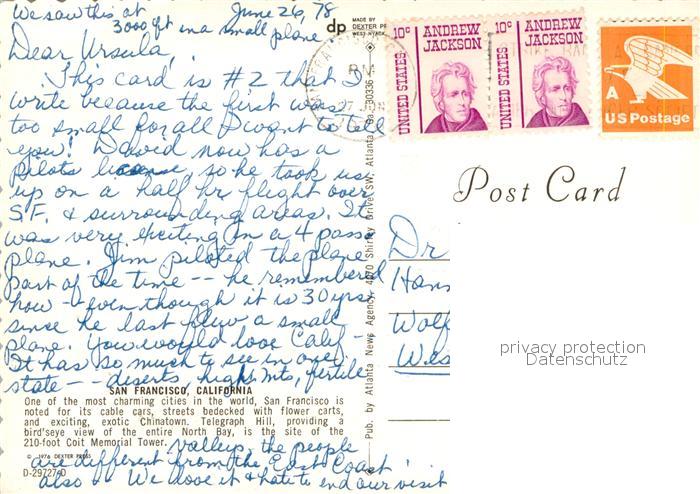 We saw this at
3000 ft in a small plane
June 26, 78
Dear Ursula,
This card is #2 that I
write because the first was
too small for all I want to tell
you! David now has a
pilots license, so he took us
up on a half hr flight over
S.F. & surrounding areas. It
was very exciting in a 4 pass
plane. Jim piloted the plane
part of the time -- he remembered
how -- even though it is 30 yrs
since he last flew a small
plane. You would love Calif -
It has so much to see in one
state -- deserts, high mts, fertile
SAN FRANCISCO, CALIFORNIA
One of the most charming cities in the world, San Francisco is
noted for its cable cars, streets bedecked with flower carts,
and exciting, exotic Chinatown. Telegraph Hill, providing a
bird'seye view of the entire North Bay, is the site of the
210-foot Coit Memorial Tower.
valleys, the people
© 1976 DEXTER PRESS
are different from the East Coast
D-29727-D
also -- We love it & hate to end our visit
dp
MADE BY
DEXTER
WEST NYACK
Pub. by Atlanta News Agency, 4070 Shirley Drive, SW, Atlanta Ga. 30336
PM
10c
ANDREW
JACKSON
UNITED STATES
10c
ANDREW
JACKSON
UNITED STATES
A
US Postage
Post Card
Dr
Hans
Wolf
Wes
privacy protection
Datenschutz